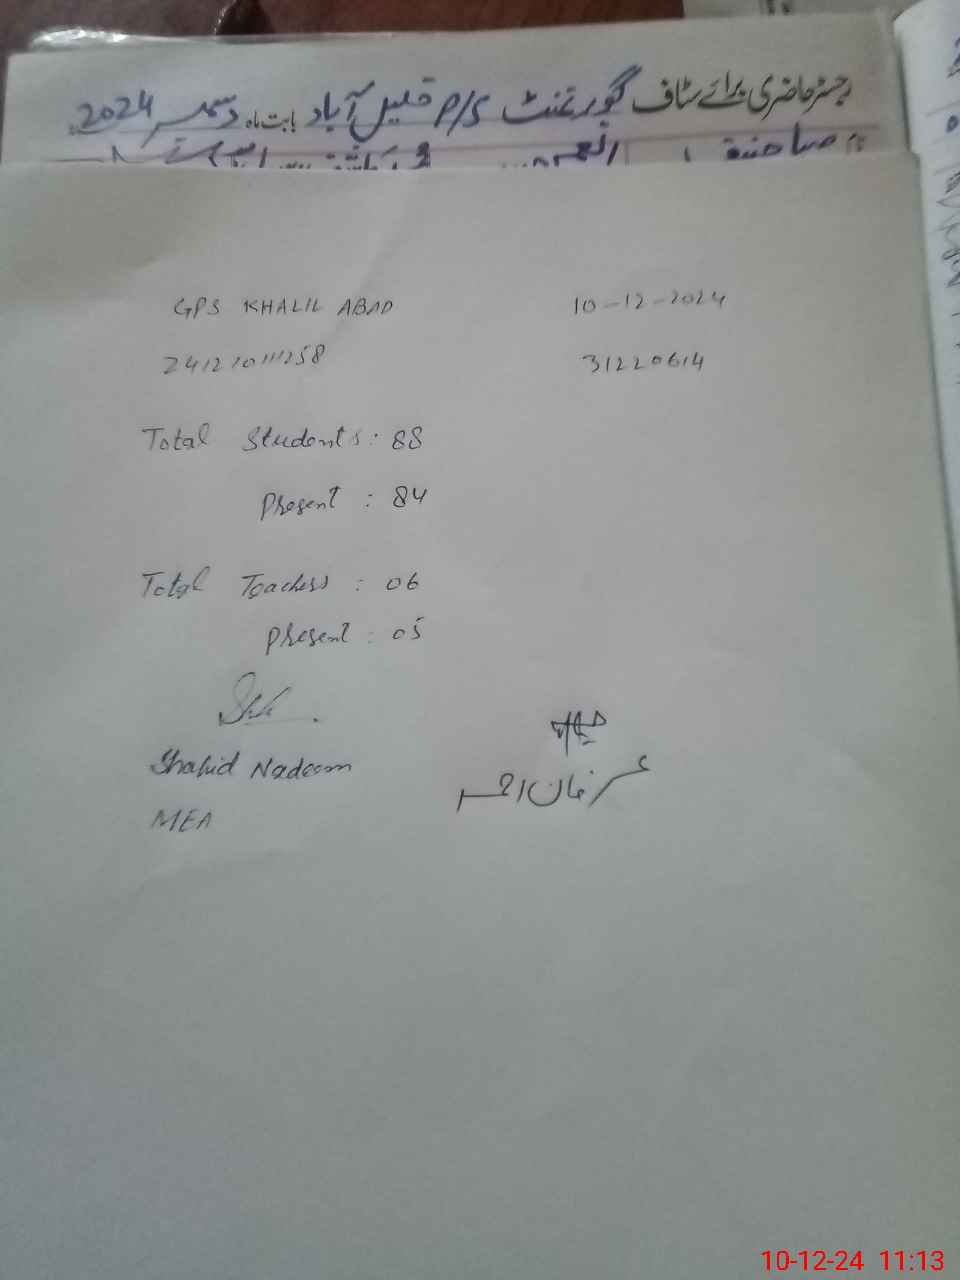 رجسٹر حاضری برائے سٹاف گورنمنٹ P/S خلیل آباد بابت ماہ دسمبر 2024
GPS KHALIL ABAD 10-12-2024
31220614
Total Students: 88
Present : 84
Total Teachers : 06
Present : 05
Shahid Nadeem
MEA
عرفان احمد
10-12-24 11:13